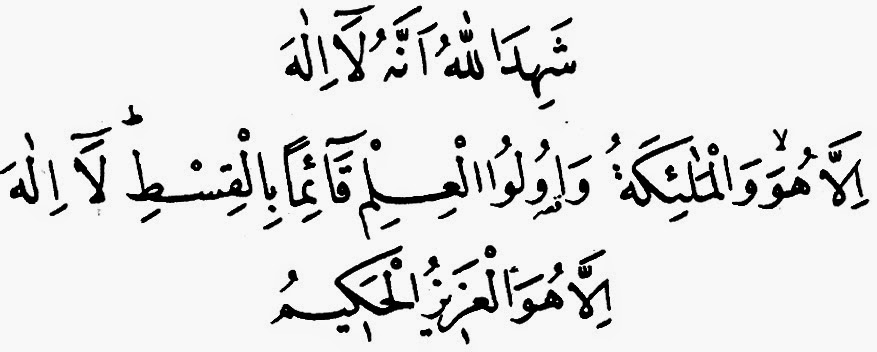 شَهِدَ اللهُ اَنَّهُ لَآ اِلٰهَ
اِلَّا هُوَۙ وَالْمَلٰۤئِكَةُ وَاُولُوا الْعِلْمِ قَآئِمًا بِالْقِسْطِۗ لَآ اِلٰهَ
اِلَّا هُوَ الْعَزِيْزُ الْحَكِيْمُ